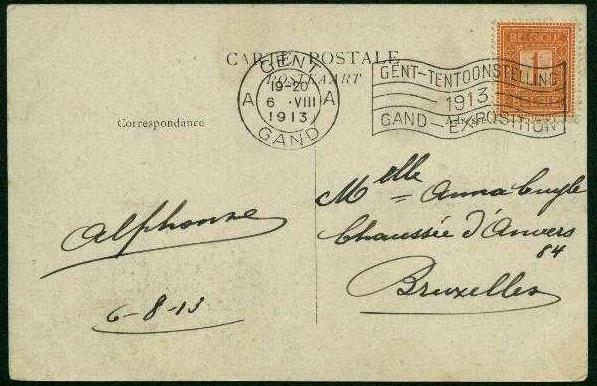 CARTE POSTALE
POSTKAART
GENT
19-20
A A
6 ·VIII
1913
GAND
GENT-TENTOONSTELLING
1913
GAND-EXPOSITION
BELGIË
1
Correspondance
Alphonse
6-8-13
Melle Anna
Chaussée d'Anvers
84
Bruxelles